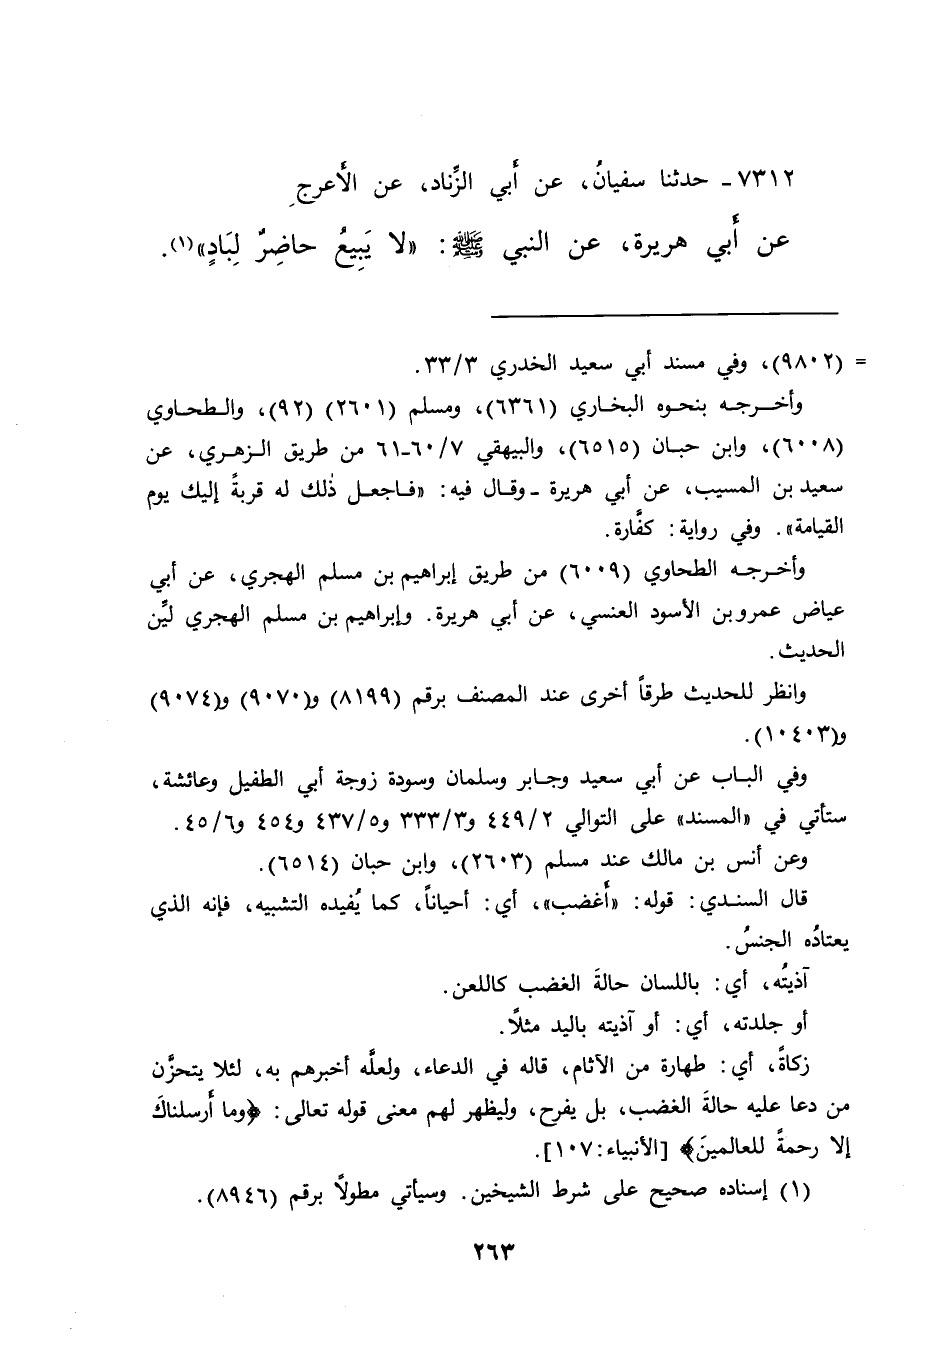 ٧٣١٢ـ حدثنا سفيانُ، عن أَبي الزِّناد، عن الأَعرجِ
عن أَبي هريرة، عن النبي ﷺ: «لا يَبِيعُ حاضِرٌ لِبَادٍ»(١).
= (٩٨٠٢)، وفي مسند أبي سعيد الخدري ٣/٣٣.
وأخرجه بنحوه البخاري (٦٣٦١)، ومسلم (٢٦٠١) (٩٢)، والطحاوي
(٦٠٠٨)، وابن حبان (٦٥١٥)، والبيهقي ٧/٦٠ـ٦١ من طريق الزهري، عن
سعيد بن المسيب، عن أبي هريرة ـ وقال فيه: «فاجعل ذٰلك له قربةً إليك يوم
القيامة». وفي رواية: كفَّارة.
وأخرجه الطحاوي (٦٠٠٩) من طريق إبراهيم بن مسلم الهجري، عن أبي
عياض عمرو بن الأسود العنسي، عن أبي هريرة. وإبراهيم بن مسلم الهجري ليِّن
الحديث.
وانظر للحديث طرقاً أخرى عند المصنف برقم (٨١٩٩) و(٩٠٧٠) و(٩٠٧٤)
و(١٠٤٠٣).
وفي الباب عن أبي سعيد وجابر وسلمان وسودة زوجة أبي الطفيل وعائشة،
ستأتي في «المسند» على التوالي ٢/٤٤٩ و٣/٣٣٣ و٥/٤٣٧ و٤٥٤ و٦/٤٥.
وعن أنس بن مالك عند مسلم (٢٦٠٣)، وابن حبان (٦٥١٤).
قال السندي: قوله: «أَغضب»، أي: أحياناً، كما يُفيده التشبيه، فإنه الذي
يعتادُه الجنسُ.
آذيتُه، أي: باللسان حالةَ الغضب كاللعن.
أو جلدته، أي: أو آذيته باليد مثلًا.
زكاةً، أي: طهارة من الآثام، قاله في الدعاء، ولعلَّه أخبرهم به، لئلا يتحزَّن
من دعا عليه حالةَ الغضب، بل يفرح، وليظهر لهم معنى قوله تعالى: ﴿وما أَرسلناكَ
إلا رحمةً للعالمينَ﴾ [الأنبياء:١٠٧].
(١) إسناده صحيح على شرط الشيخين. وسيأتي مطولًا برقم (٨٩٤٦).
٢٦٣